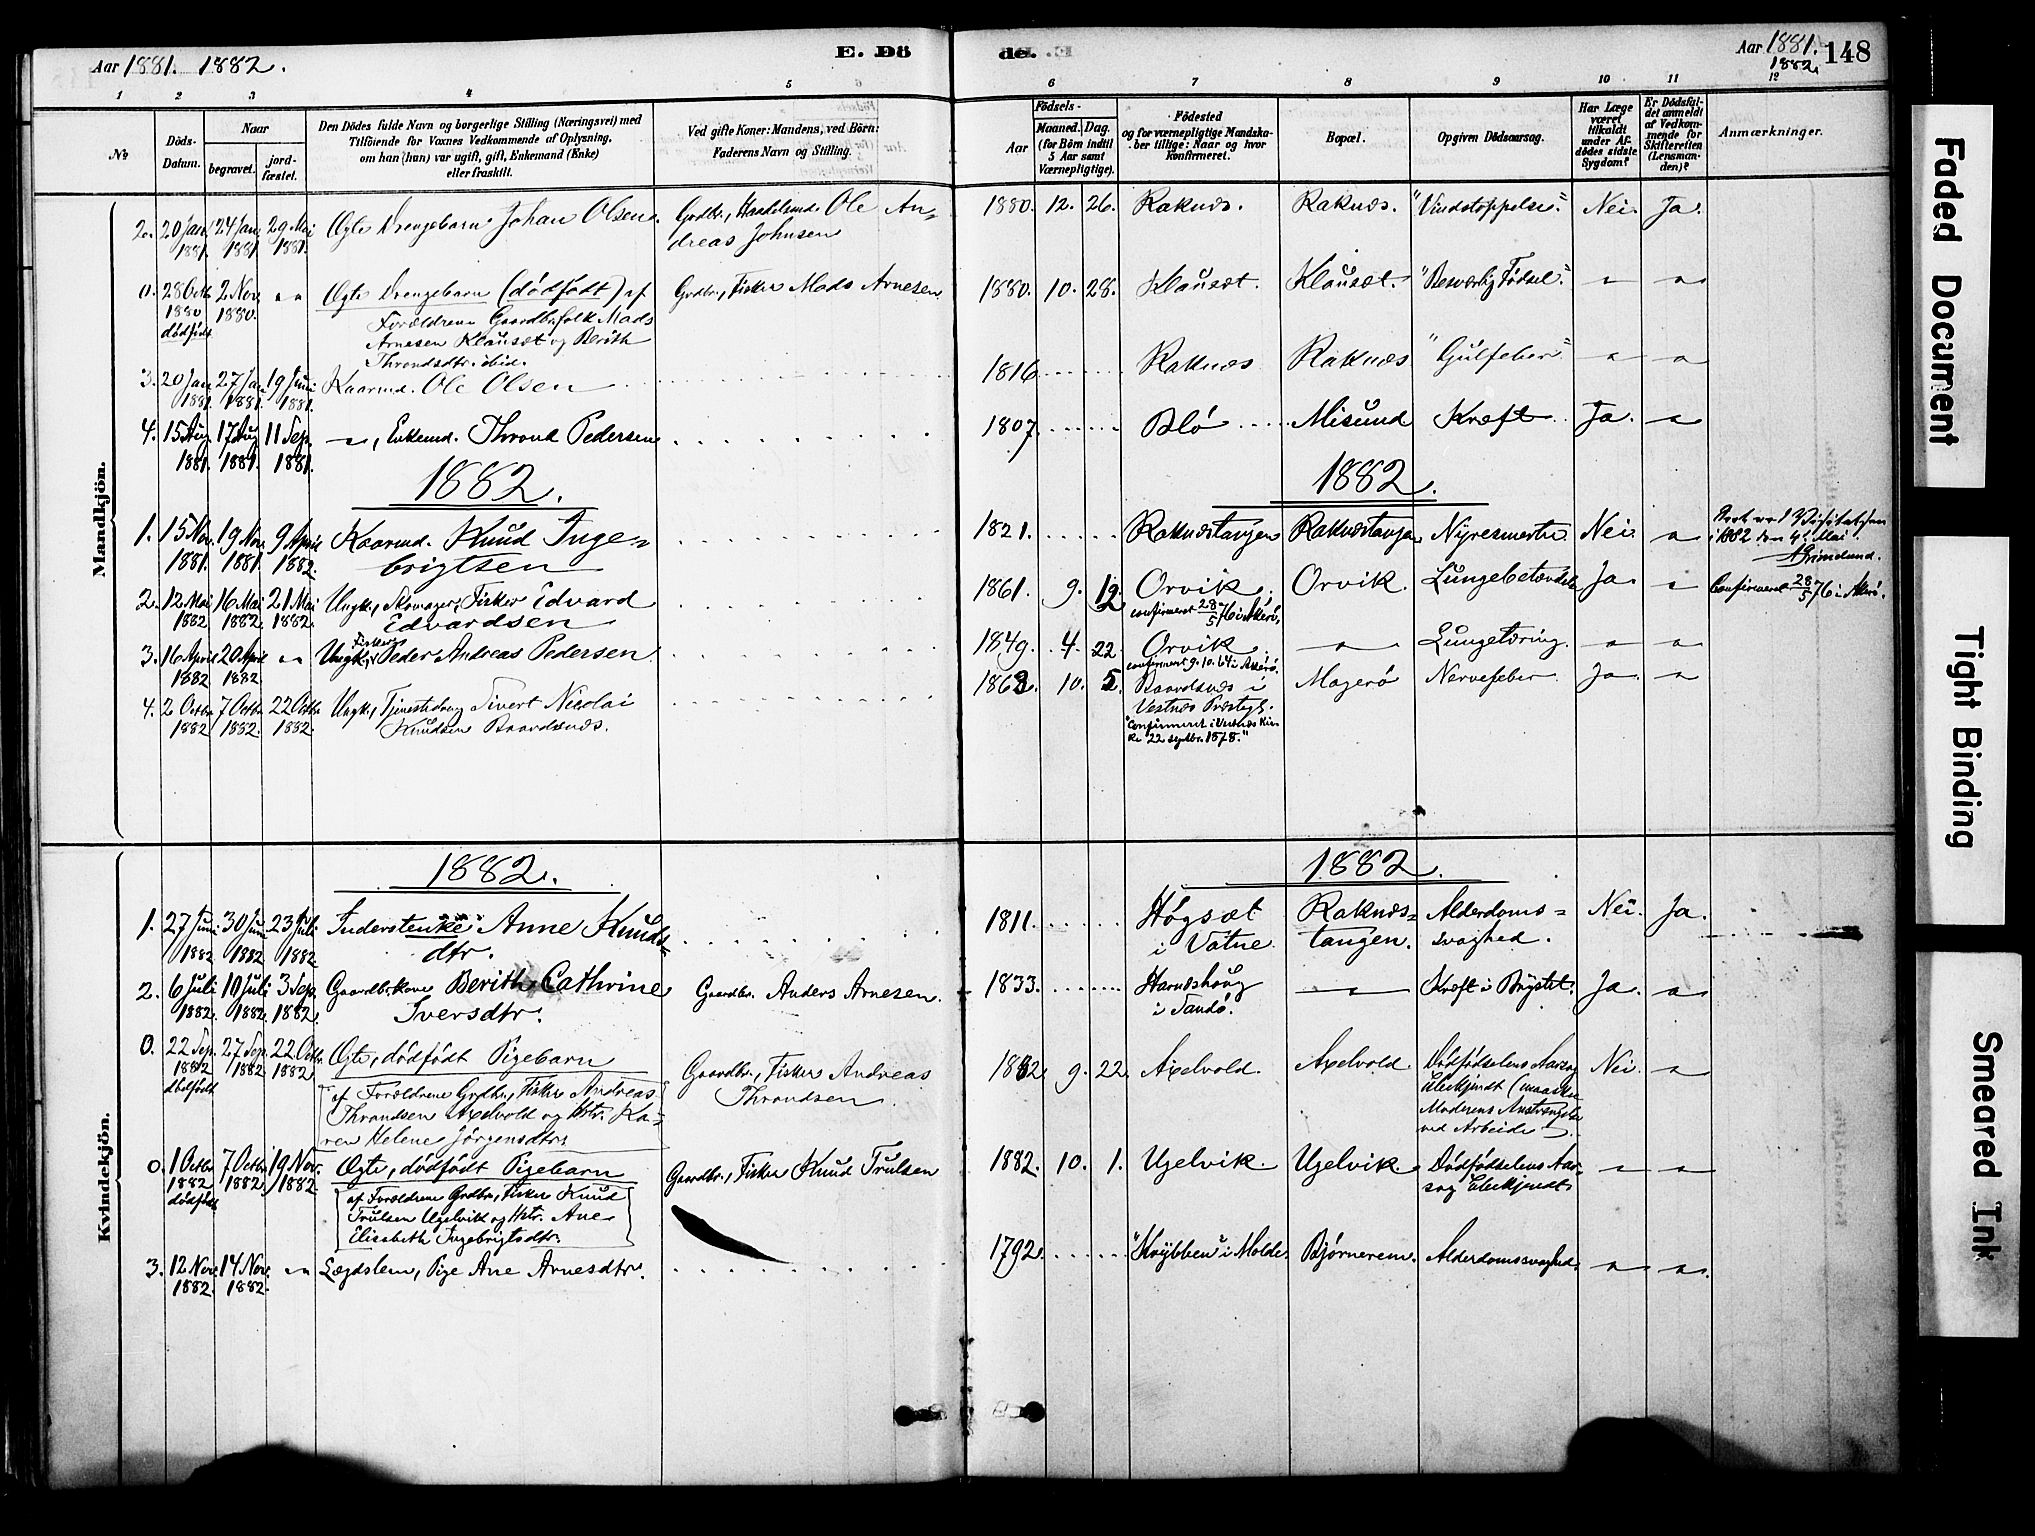 Aar 1881. 1882.
E. Dö
de.
Aar 1881. 148
1882.
1 2 3 4 5
6 7 8 9 10 11 12
No
Döds-
Datum.
Naar
begravet.
jord-
fæstet.
Den Dödes fulde Navn og borgerlige Stilling (Næringsvei) med
Tilföiende for Voxnes Vedkommende af Oplysning,
om han (hun) var ugift, gift, Enkemand (Enke)
eller fraskilt.
Ved gifte Koner: Mandens, ved Börn:
Faderens Navn og Stilling.
Födsels-
Aar
Maaned. Dag.
(for Börn indtil
5 Aar samt
Værnepligtige).
Födested
og for værnepligtige Mandska-
ber tillige: Naar og hvor
konfirmeret.
Bopæl.
Opgiven Dödsaarsag.
Har Læge
været
tilkaldt
under Af-
dödes sidste
Sygdom?
Er Dödsfal-
det anmeldt
af Vedkom-
mende for
Skifteretten
(Lensman-
den)?
Anmærkninger.
Mandkjön.
2. 20 Jan. 24 Jan. 29 Mai Ægte Drengebarn Johan Olsen. Grdbr., Handelsmd. Ole An= 1880. 12. 26. Raknæs. Raknæs. "Vindstoppelse." Nei. Ja.
1881. 1881. 1881. dreas Johnsen
0. 28 Octb. 2 Nov. " Ægte Drengebarn (dødfødt) af Grdbr., Fisker Mads Arnesen 1880. 10. 28. Klauset. Klauset. "Besværlig Fødsel." " "
1880 1880.
dødfødt
Forældrene Gaardbr.folk Mads
Arnesen Klauset og Berith
Throndsdtr. ibid.
3. 20 Jan. 27 Jan. 19 Juni Kaarmd. Ole Olsen 1816 Raknæs Raknæs "Gulfeber" " "
1881. 1881. 1881.
4. 15 Aug. 17 Aug. 11 Sep. ", Enkemd. Thrond Pedersen 1807 Blø Misund Kræft Ja. "
1881. 1881. 1881.
1882. 1882.
1. 15 Nov. 19 Nov. 9 April Kaarmd. Knud Inge= 1821. Raknæstangen Raknæstangen Nyresmerte Nei. "
1881. 1881. 1882. brigtsen
i 1882 den 4de Mai
Grimelund.
2. 12 Mai 16 Mai 21 Mai Ungk., Fisker Edvard 1861. 9. 12. Orvik, Orvik Lungebetændelse Ja. " Confirmeret 28/5 76 i Akerø.
1882 1882 1882. Edvardsen confirmeret 28/5 76 i Akerø.
3. 16 April 20 April " Ungk., Fisker Peder Andreas Pedersen 1849. 4. 22. Orvik " Lungetæring. " "
1882 1882. confirmeret 9.10.64 i Akerø.
4. 2 Octbr. 7 Octbr. 22 Octbr. Ungk., Tjenestedreng Sivert Nicolai 1863. 10. 5. Baardsnæs i Magerø Nervefeber Ja. "
1882 1882. 1882. Knudsen Baardsnæs. Vestnæs Præstegj.
"Confirmeret i Vestnæs Kir=
ke 22 septbr. 1878."
Kvindekjön.
1882. 1882.
1. 27 Juni 30 Juni 23 Juli Inderstenke Anne Knuds= 1811. Høgset Raknæs= Alderdoms= Nei. Ja.
1882 1882 1882 dtr. i Vatne tangen. svaghed.
2. 6 Juli 10 Juli 3 Sep. Gaardbr.kone Berith Cathrine Gaardbr. Anders Arnesen. 1833. Harnæshoug " Kræft i Brystet. Ja. "
1882. 1882. 1882. Iversdtr. i Sandø.
0. 22 Sep. 27 Sep. 22 Octbr. Ægte, dødfødt Pigebarn Gaardbr., Fisker Andreas 1882 9. 22. Axelvold. Axelvold. Dødfødselens Aarsag Nei. "
1882 1882 1882. Throndsen ubekjendt (maaske
dødfødt
af Forældrene Grdbr., Fisker Andreas Moderens Anstrengelse
Throndsen Axelvold og Hstr. Ka= ved Arbeide).
ren Helene Jørgensdtr.
0. 1 Octbr. 7 Octbr. 19 Nov. Ægte, dødfødt Pigebarn Gaardbr., Fisker Knud Trulsen 1882. 10. 1. Ugelvik. Ugelvik Dødfødselens Aar= " "
1882 1882. 1882 sag ubekjendt
dødfødt
af Forældrene Grdbr., Fisker Knud
Trulsen Ugelvik og Hstr. Ane
Elisabeth Ingebrigtsdtr.
3. 12 Nov. 14 Nov. " Lægdslem, Pige Ane Arnesdtr. 1792. "Knybben" i Molde. Bjørnerem. Alderdomssvaghed. " "
1882. 1882.
Faded Document
Tight Binding
Smeared Ink